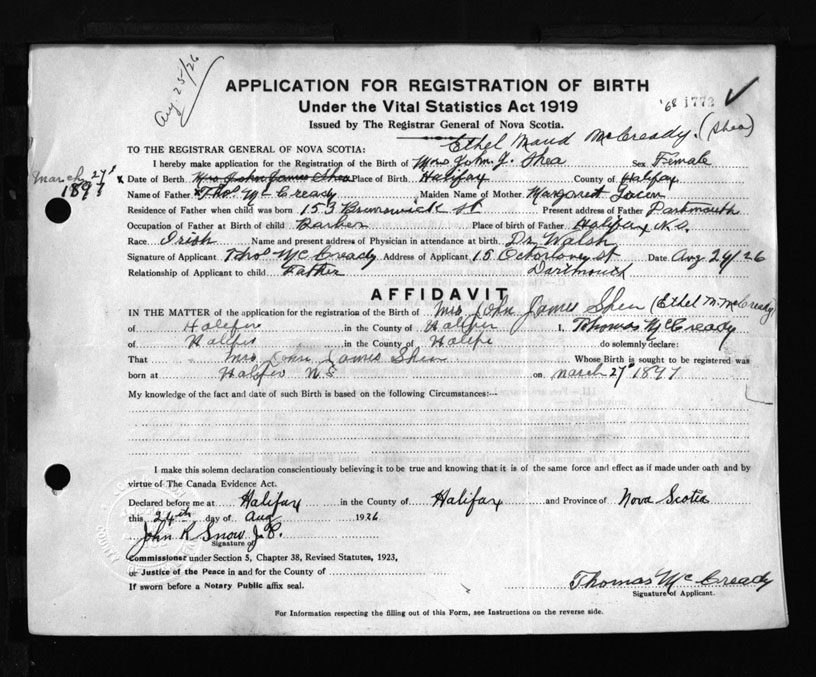 Aug 25/26
APPLICATION FOR REGISTRATION OF BIRTH
Under the Vital Statistics Act 1919
'68 1772 ✓
Issued by The Registrar General of Nova Scotia.
Ethel Maud McCready. (Shea)
TO THE REGISTRAR GENERAL OF NOVA SCOTIA:
I hereby make application for the Registration of the Birth of Mrs John J. Shea Sex Female
March 27th 1897 x Date of Birth Mrs John James Shea Place of Birth Halifax County of Halifax
Name of Father Thos McCready Maiden Name of Mother Margaret
Residence of Father when child was born 153 Brunswick St Present address of Father Dartmouth
Occupation of Father at Birth of child Barber Place of birth of Father Halifax N.S.
Race Irish Name and present address of Physician in attendance at birth. Dr. Walsh
Signature of Applicant Thos McCready Address of Applicant 15 St Date Aug 24/26
Relationship of Applicant to child Father Dartmouth
AFFIDAVIT
IN THE MATTER of the application for the registration of the Birth of Mrs John James Shea (Ethel M. McCready)
of Halifax in the County of Halifax I, Thomas McCready
of Halifax in the County of Halifax do solemnly declare:
That Mrs John James Shea Whose Birth is sought to be registered was
born at Halifax N.S on March 27th 1897
My knowledge of the fact and date of such Birth is based on the following Circumstances:—
I make this solemn declaration conscientiously believing it to be true and knowing that it is of the same force and effect as if made under oath and by
virtue of The Canada Evidence Act.
Declared before me at Halifax in the County of Halifax and Province of Nova Scotia
this 24th day of Aug 1926
John R Snow J.P.
Signature of
Commissioner under Section 5, Chapter 38, Revised Statutes, 1923,
or Justice of the Peace in and for the County of
If sworn before a Notary Public affix seal.
Thomas McCready
Signature of Applicant.
For Information respecting the filling out of this Form, see Instructions on the reverse side.